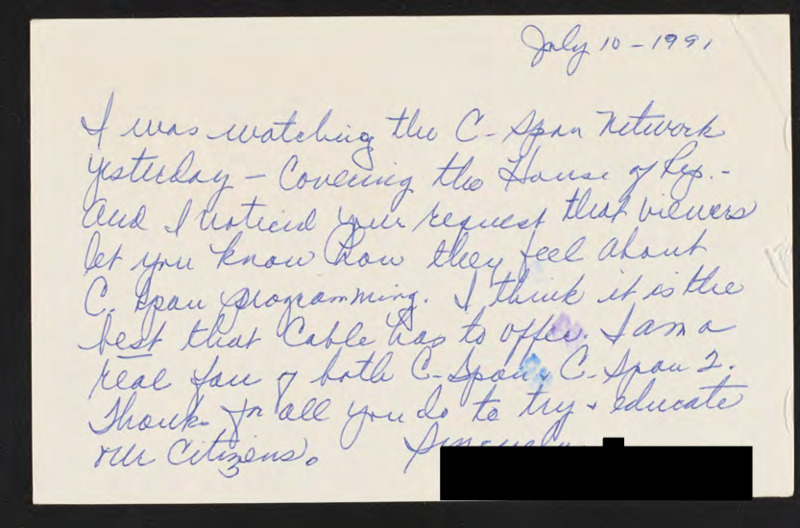 July 10 - 1991
I was watching the C-Span Network
yesterday - Covering the House of Rep. -
And I noticed your request that viewers
let you know how they feel about
C. Span programming. I think it is the
best that Cable has to offer. I am a
real fan of both C-Span & C-Span 2.
Thanks for all you do to try & educate
our Citizens. Sincerely